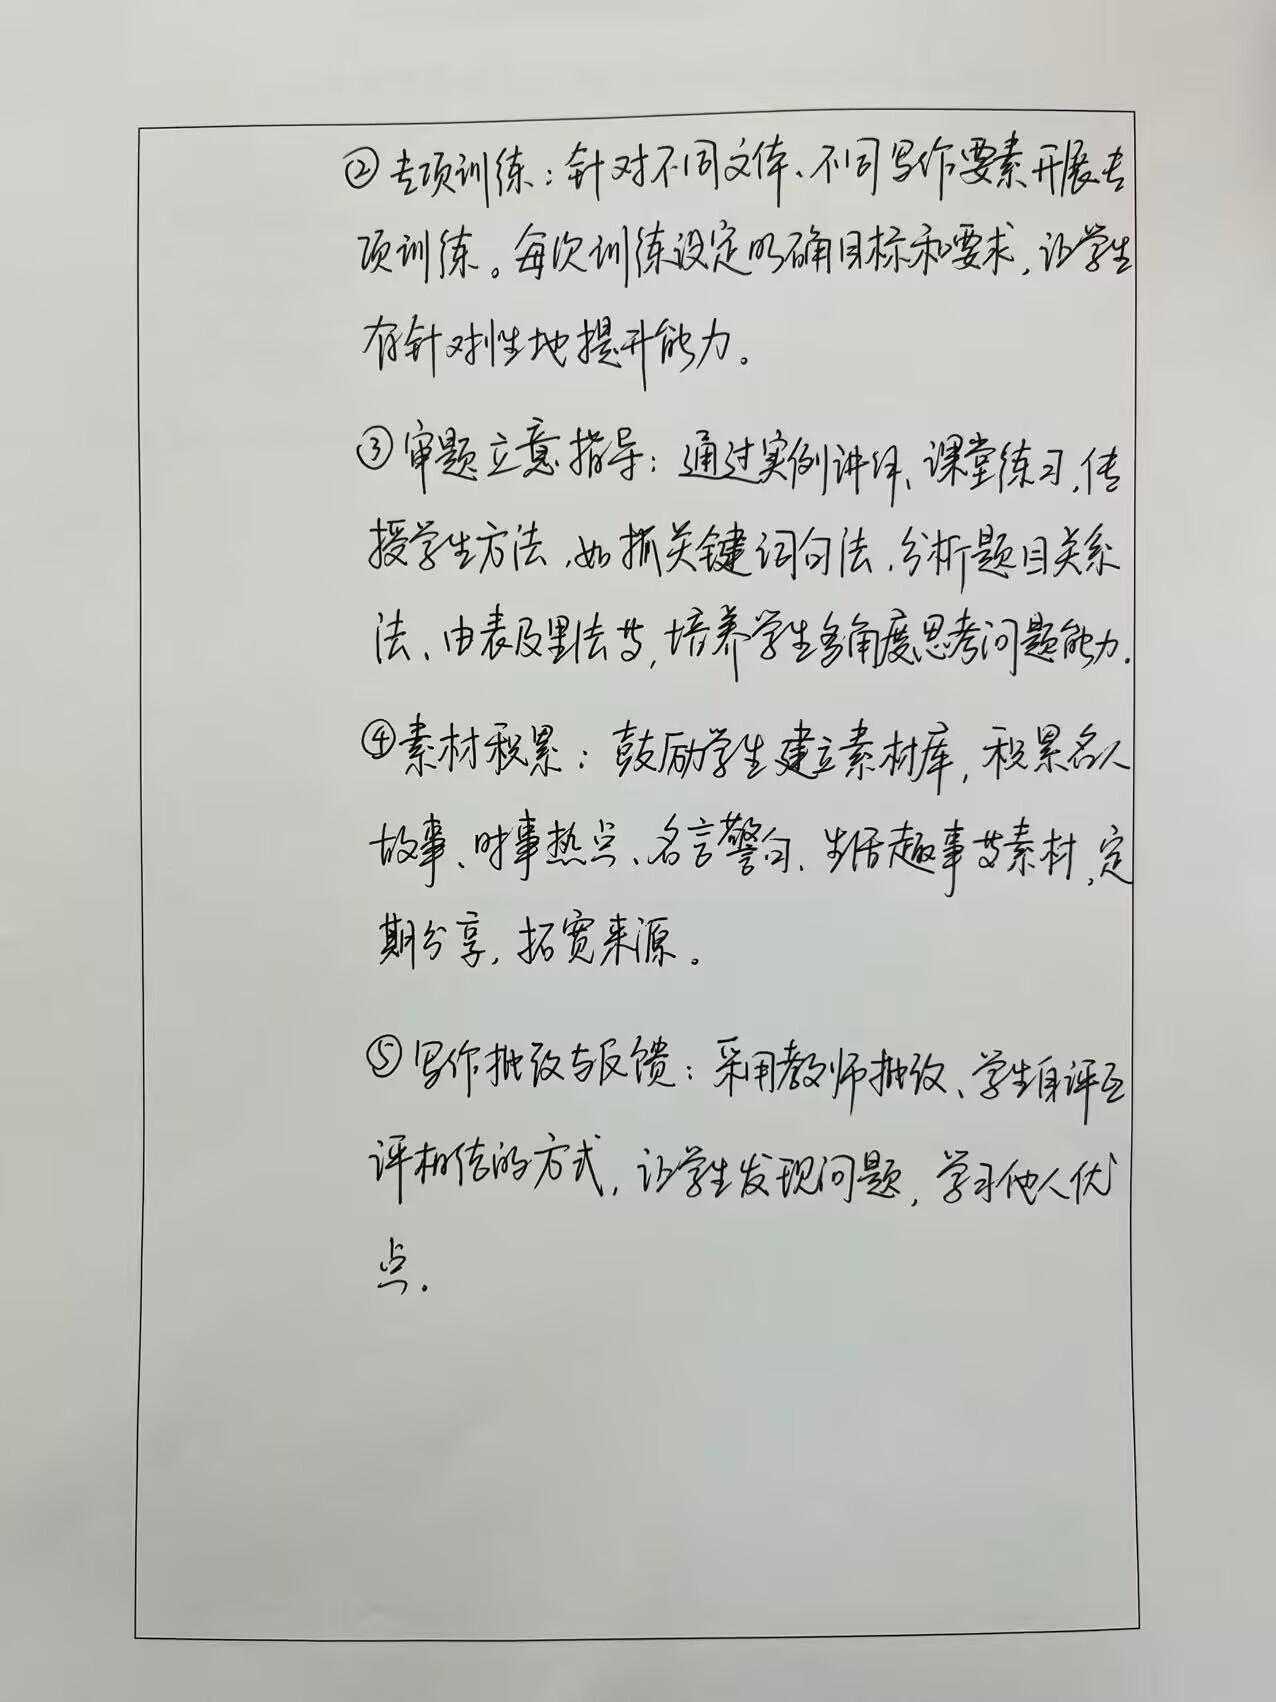 ②专项训练：针对不同文体、不同写作要素开展专
项训练。每次训练设定明确目标和要求，让学生
有针对性地提升能力。
③审题立意指导：通过实例讲评、课堂练习，传
授学生方法，如抓关键词句法，分析题目关系
法、由表及里法等，培养学生多角度思考问题能力.
④素材积累：鼓励学生建立素材库，积累名人
故事、时事热点、名言警句、生活趣事等素材，定
期分享，拓宽来源。
⑤写作批改与反馈：采用教师批改、学生自评互
评相结的方式，让学生发现问题，学习他人优
点.